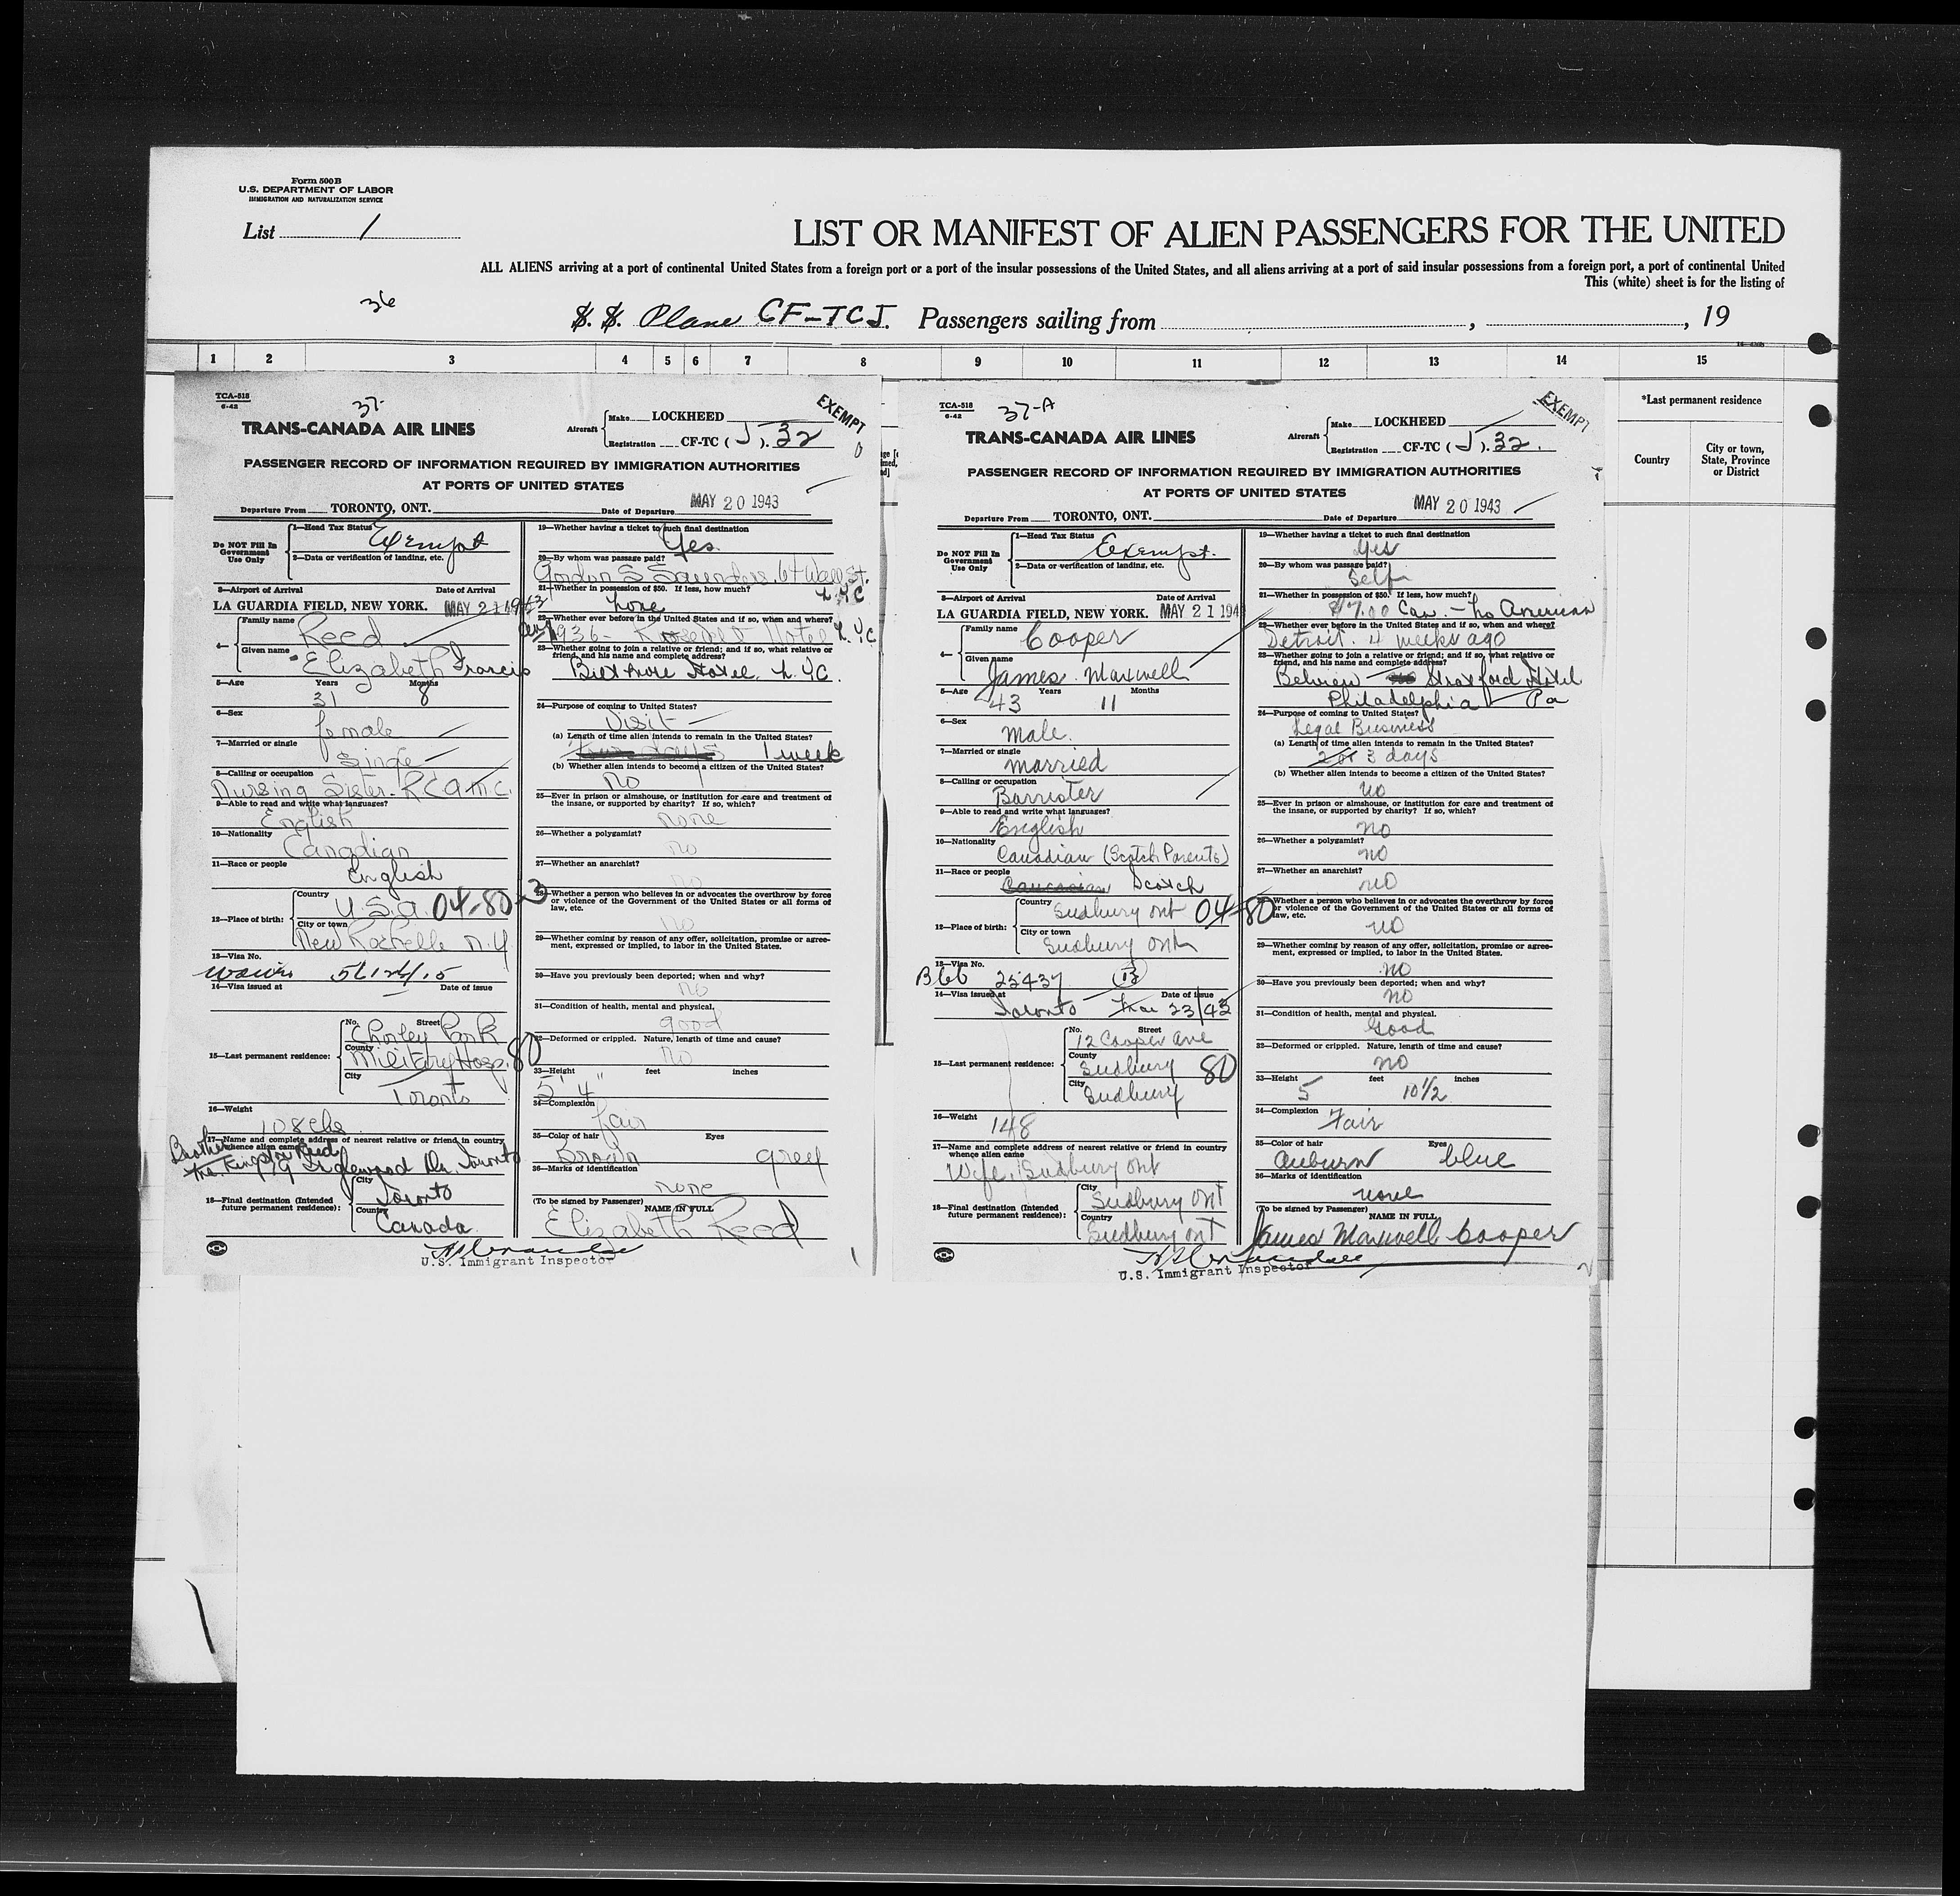 Form 500B
U.S. DEPARTMENT OF LABOR
IMMIGRATION AND NATURALIZATION SERVICE
List 1
LIST OR MANIFEST OF ALIEN PASSENGERS FOR THE UNITED
ALL ALIENS arriving at a port of continental United States from a foreign port or a port of the insular possessions of the United States, and all aliens arriving at a port of said insular possessions from a foreign port, a port of continental United
This (white) sheet is for the listing of
36
S. S. Plane CF-TCJ. Passengers sailing from , , 19
1 2 3 4 5 6 7 8 9 10 11 12 13 14 15
*Last permanent residence
Country
City or town, State, Province or District
TCA-518
6-42
37
TRANS-CANADA AIR LINES
Aircraft
Make LOCKHEED
Registration CF-TC (J). 32
EXEMPT
PASSENGER RECORD OF INFORMATION REQUIRED BY IMMIGRATION AUTHORITIES
AT PORTS OF UNITED STATES
Departure From TORONTO, ONT. Date of Departure MAY 20 1943
Do NOT Fill In Government Use Only
1—Head Tax Status Exempt
2—Data or verification of landing, etc.
3—Airport of Arrival Date of Arrival
LA GUARDIA FIELD, NEW YORK. MAY 21 1943
4— Family name Reed
Given name Elizabeth Francis
5—Age Years Months
31 8
6—Sex
female
7—Married or single
Single
8—Calling or occupation
Nursing Sister - R.C.A.M.C.
9—Able to read and write what languages?
English
10—Nationality
Canadian
11—Race or people
English
12—Place of birth: Country
U.S.A. 04-80-3
City or town
New Rochelle N.Y
13—Visa No.
14—Visa issued at Date of issue
15—Last permanent residence:
No. Street
Chorley Park
County
Military Hosp. 80
City
Toronto
16—Weight
108
17—Name and complete address of nearest relative or friend in country whence alien came
Brother
Kingston Reed
79 Inglewood Dr. Toronto
18—Final destination (Intended future permanent residence):
City
Toronto
Country
Canada
19—Whether having a ticket to such final destination
Yes.
20—By whom was passage paid?
Gordon S Saunders, 64 Wall St.
N.Y.C
21—Whether in possession of $50. If less, how much?
22—Whether ever before in the United States and if so, when and where?
1936 - Hotel N.Y.C
23—Whether going to join a relative or friend; and if so, what relative or friend, and his name and complete address?
Biltmore Hotel. N.YC.
24—Purpose of coming to United States?
Visit
(a) Length of time alien intends to remain in the United States?
1 week
(b) Whether alien intends to become a citizen of the United States?
No
25—Ever in prison or almshouse, or institution for care and treatment of the insane, or supported by charity? If so, which?
none
26—Whether a polygamist?
no
27—Whether an anarchist?
no
28—Whether a person who believes in or advocates the overthrow by force or violence of the Government of the United States or all forms of law, etc.
no
29—Whether coming by reason of any offer, solicitation, promise or agreement, expressed or implied, to labor in the United States.
30—Have you previously been deported; when and why?
no
31—Condition of health, mental and physical.
good
32—Deformed or crippled. Nature, length of time and cause?
no
33—Height feet inches
5' 4"
34—Complexion
fair
35—Color of hair Eyes
Brown grey
36—Marks of identification
none
(To be signed by Passenger) NAME IN FULL
Elizabeth Reed
U.S. Immigrant Inspector
TCA-518
6-42
37-A
TRANS-CANADA AIR LINES
Aircraft
Make LOCKHEED
Registration CF-TC (J). 32.
EXEMPT
PASSENGER RECORD OF INFORMATION REQUIRED BY IMMIGRATION AUTHORITIES
AT PORTS OF UNITED STATES
Departure From TORONTO, ONT. Date of Departure MAY 20 1943
Do NOT Fill In Government Use Only
1—Head Tax Status Exempt.
2—Data or verification of landing, etc.
3—Airport of Arrival Date of Arrival
LA GUARDIA FIELD, NEW YORK. MAY 21 194
4— Family name Cooper
Given name
James Maxwell
5—Age Years Months
43 11
6—Sex
Male.
7—Married or single
married
8—Calling or occupation
Barrister
9—Able to read and write what languages?
English
10—Nationality
Canadian (Scotch Parents)
11—Race or people
Caucasian Scotch
12—Place of birth: Country
Sudbury Ont 04-80
City or town
Sudbury Ont
13—Visa No.
B66 25437
14—Visa issued at Date of issue
Toronto Mar 23/43
15—Last permanent residence:
No. Street
12 Cooper Ave
County
Sudbury 80
City
Sudbury
16—Weight
148
17—Name and complete address of nearest relative or friend in country whence alien came
Wife, Sudbury Ont
18—Final destination (Intended future permanent residence):
City
Sudbury Ont
Country
Sudbury Ont
19—Whether having a ticket to such final destination
yes
20—By whom was passage paid?
Self
21—Whether in possession of $50. If less, how much?
$7.00 Can. - no American
22—Whether ever before in the United States and if so, when and where?
Detroit. 4 weeks ago
23—Whether going to join a relative or friend; and if so, what relative or friend, and his name and complete address?
Belview Stratford Hotel
Philadelphia Pa
24—Purpose of coming to United States?
Legal Business
(a) Length of time alien intends to remain in the United States?
2 or 3 days
(b) Whether alien intends to become a citizen of the United States?
no
25—Ever in prison or almshouse, or institution for care and treatment of the insane, or supported by charity? If so, which?
no
26—Whether a polygamist?
no
27—Whether an anarchist?
no
28—Whether a person who believes in or advocates the overthrow by force or violence of the Government of the United States or all forms of law, etc.
no
29—Whether coming by reason of any offer, solicitation, promise or agreement, expressed or implied, to labor in the United States.
no
30—Have you previously been deported; when and why?
no
31—Condition of health, mental and physical.
Good
32—Deformed or crippled. Nature, length of time and cause?
no
33—Height feet inches
5 10 1/2
34—Complexion
Fair
35—Color of hair Eyes
auburn blue
36—Marks of identification
none
(To be signed by Passenger) NAME IN FULL
James Maxwell Cooper
U.S. Immigrant Inspector